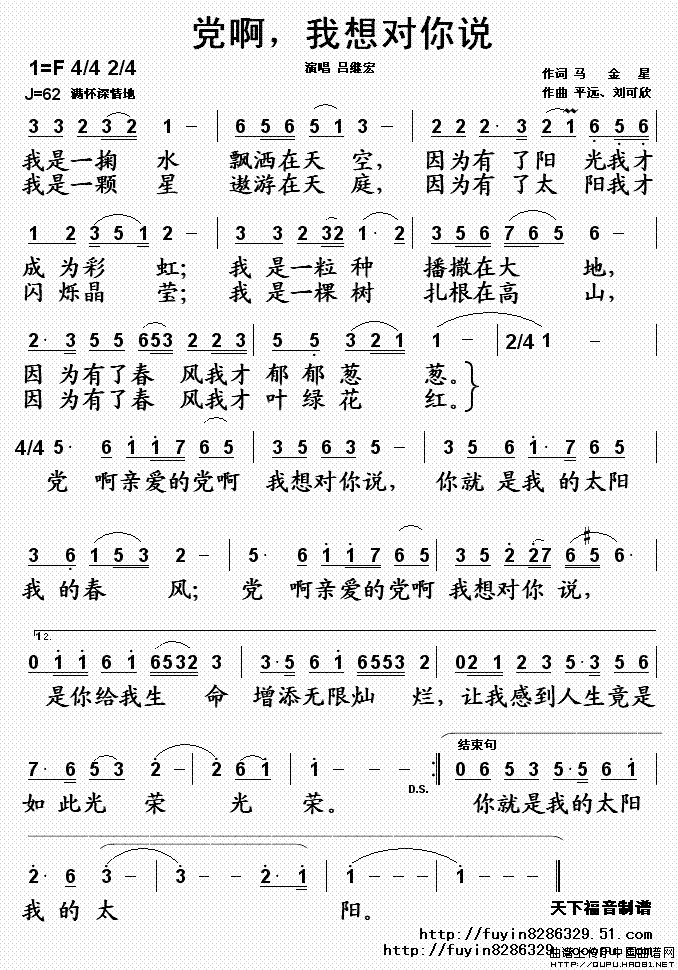 党啊，我想对你说
1=F 4/4 2/4
演唱 吕继宏
作词 马 金 星
J=62 满怀深情地
作曲 平远、刘可欣
3 3 2 3 2 1 – | 6 5 6 5 1 3 – | 2 2 2· 3 2 1 6 5 6 |
我是一掬 水 飘洒在天 空， 因为有 了阳 光我才
我是一颗 星 遨游在天 庭， 因为有 了太 阳我才
1 2 3 5 1 2 – | 3 3 2 32 1· 2 | 3 5 6 7 6 5 6 – |
成 为彩 虹； 我 是一粒 种 播撒在大 地，
闪 烁晶 莹； 我 是一棵 树 扎根在高 山，
2· 3 5 5 653 2 2 3 | 5 5 3 2 1 | 1 – | 2/4 1 – |
因 为有了春 风我才 郁 郁葱 葱。
因 为有了春 风我才 叶 绿花 红。
4/4 5· 6 1 1 7 6 5 | 3 5 6 3 5 – | 3 5 6 1· 7 6 5 |
党 啊亲爱的党啊 我想对你说， 你就 是我 的太阳
3 6 1 5 3 2 – | 5· 6 1 1 7 6 5 | 3 5 2· 27 6 #5 6· |
我 的春 风； 党 啊亲爱的党啊 我想对你 说，
12.
0 1 1 6 1 6532 3 | 3·5 6 1 6553 2 | 021 2 3 5·3 5 6 |
是你给我生 命 增添无限灿 烂， 让我感到人生竟是
结束句
7· 6 5 3 2 – | 2 6 1 | 1 – – – :‖ 0 6 5 3 5·5 6 1 |
D.S.
如 此光 荣 光 荣。 你就是我的太阳
2· 6 3 – | 3 – 2· 1 | 1 – – – | 1 – – – ‖
我 的 太 阳。
天下福音制谱
http://fuyin8286329.51.com